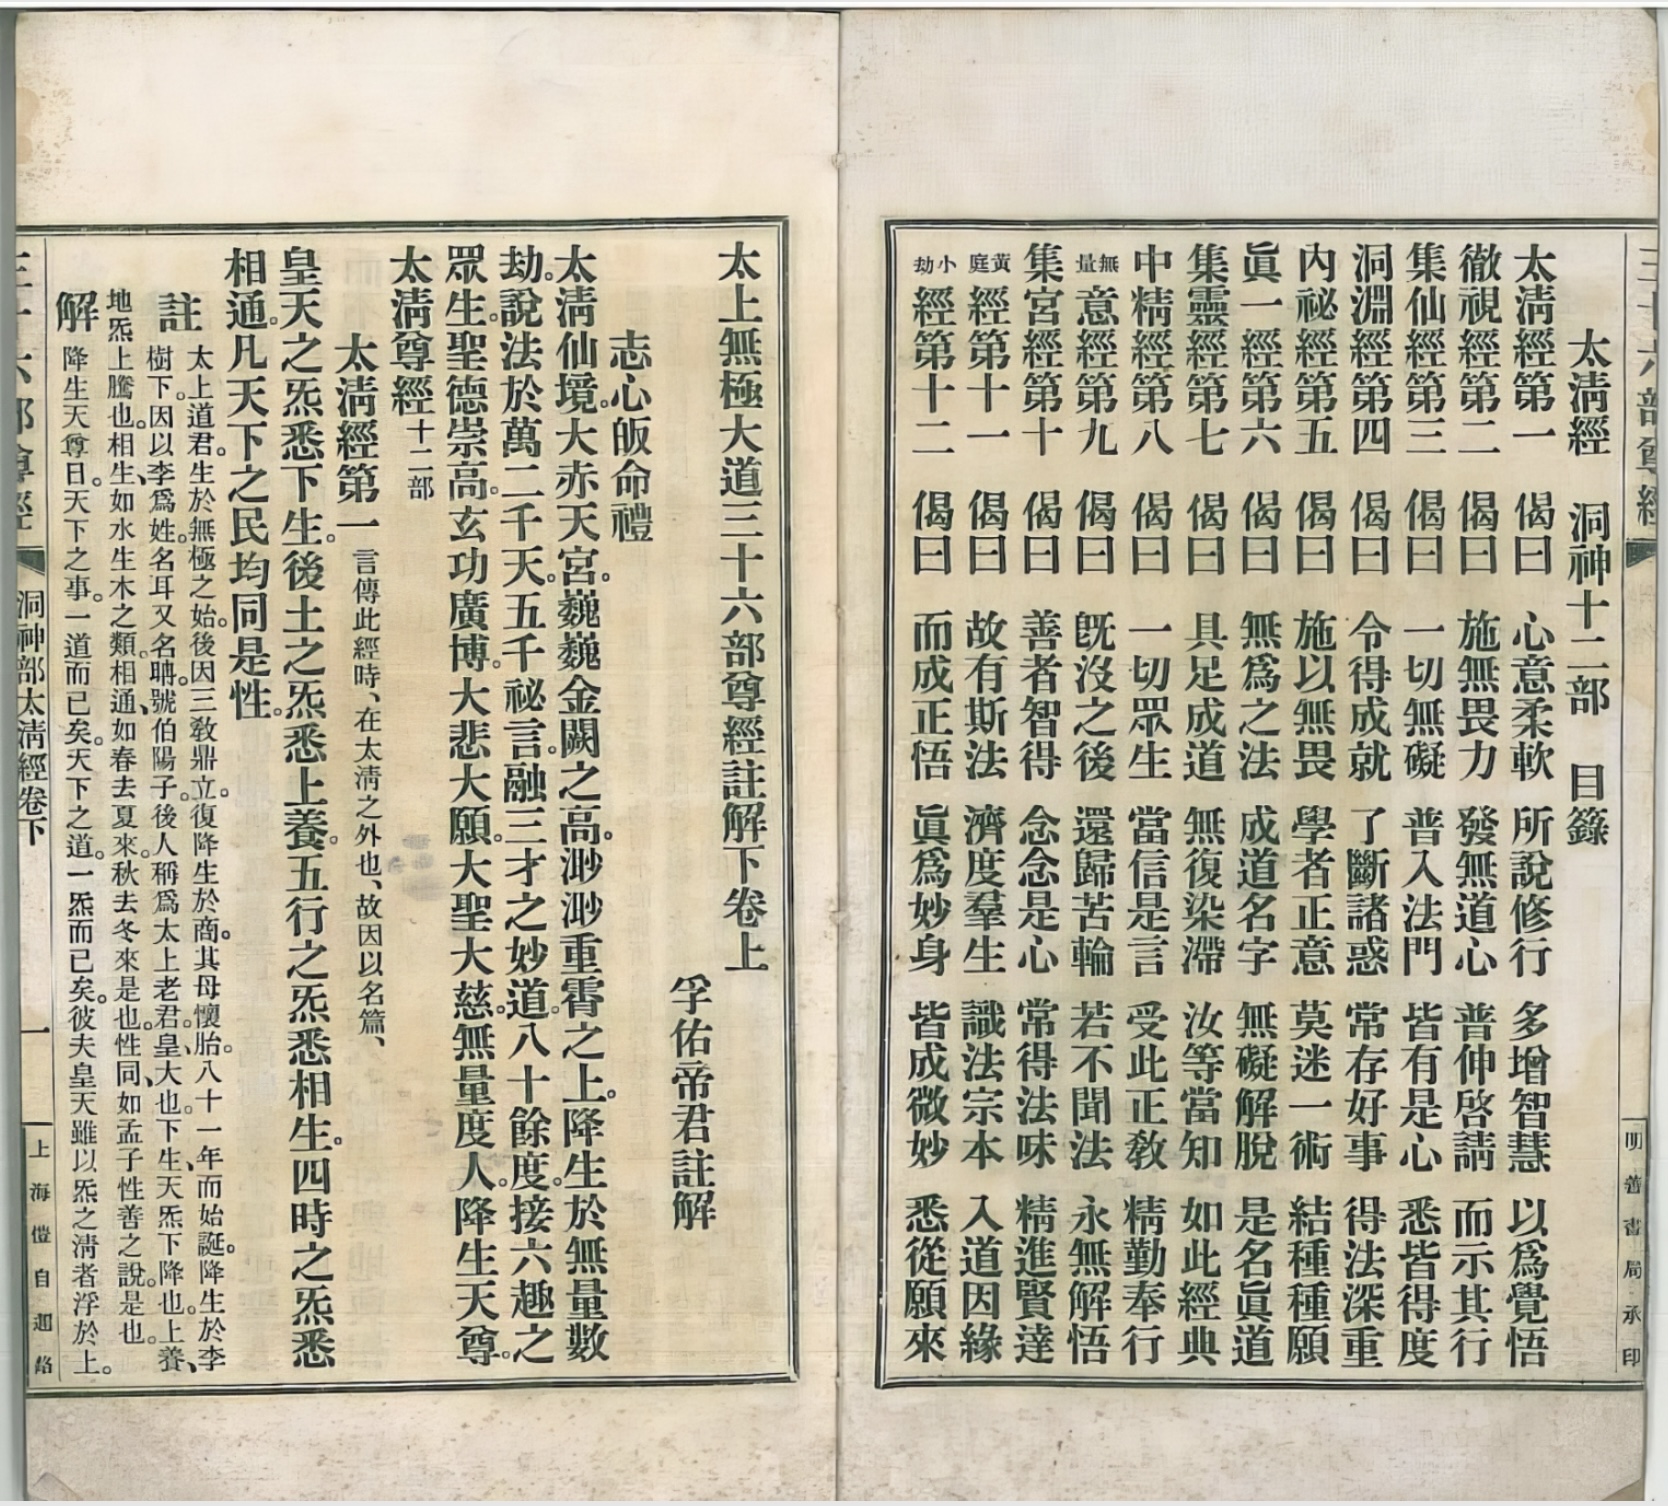 三十六部尊經
明善書局承印
太淸經　洞神十二部　目錄
太淸經第一　偈曰　心意柔軟　所說修行　多增智慧　以爲覺悟
徹視經第二　偈曰　施無畏力　發無道心　普伸啓請　而示其行
集仙經第三　偈曰　一切無礙　普入法門　皆有是心　悉皆得度
洞淵經第四　偈曰　令得成就　了斷諸惑　常存好事　得法深重
內祕經第五　偈曰　施以無畏　學者正意　莫迷一術　結種種願
眞一經第六　偈曰　無爲之法　成道名字　無礙解脫　是名眞道
集靈經第七　偈曰　具足成道　無復染滯　汝等當知　如此經典
中精經第八　偈曰　一切眾生　當信是言　受此正敎　精勤奉行
無量意經第九　偈曰　旣沒之後　還歸苦輪　若不聞法　永無解悟
集宮經第十　偈曰　善者智得　念念是心　常得法味　精進賢達
黃庭經第十一　偈曰　故有斯法　濟度羣生　識法宗本　入道因緣
小劫經第十二　偈曰　而成正悟　眞爲妙身　皆成微妙　悉從願來
太上無極大道三十六部尊經註解下卷上
孚佑帝君註解
志心皈命禮
太淸仙境。大赤天宮。巍巍金闕之高。渺渺重霄之上。降生於無量數
劫。說法於萬二千天。五千祕言。融三才之妙道。八十餘度。接六趣之
眾生。聖德崇高。玄功廣博。大悲大願。大聖大慈。無量度人。降生天尊。
太淸尊經十二部
太淸經第一　言傳此經時、在太淸之外也、故因以名篇、
皇天之炁悉下生。後土之炁悉上養。五行之炁悉相生。四時之炁悉
相通。凡天下之民均同是性。
註　太上道君。生於無極之始。後因三敎鼎立。復降生於商。其母懷胎。八十一年而始誕。降生於李
樹下。因以李爲姓。名耳又名聃。號伯陽子。後人稱爲太上老君。皇、大也。下生、天炁下降也。上養、
地炁上騰也。相生、如水生木之類。相通、如春去夏來。秋去冬來是也。性同、如孟子性善之說。是也。
解　降生天尊曰。天下之事。一道而已矣。天下之道。一炁而已矣。彼夫皇天雖以炁之淸者浮於上。
三十六部尊經　洞神部太淸經卷下　一